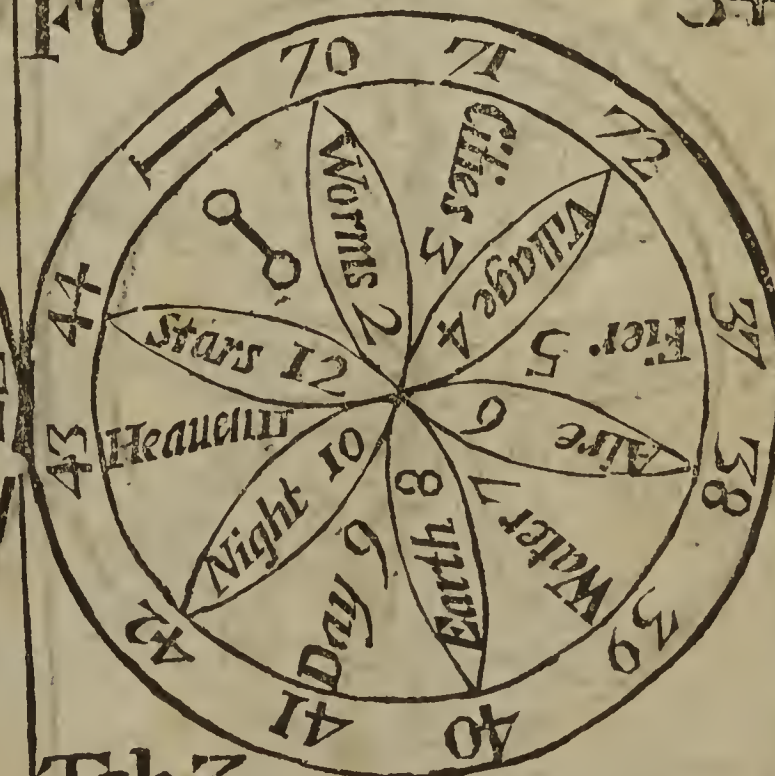 FO
70
71
72
37
38
39
40
41
42
43
44
Worms 2
Cities 3
Village 4
Fier. 5
Aire 6
Water 7
Earth 8
Day 9
Night 10
Heauen 11
Stars 12